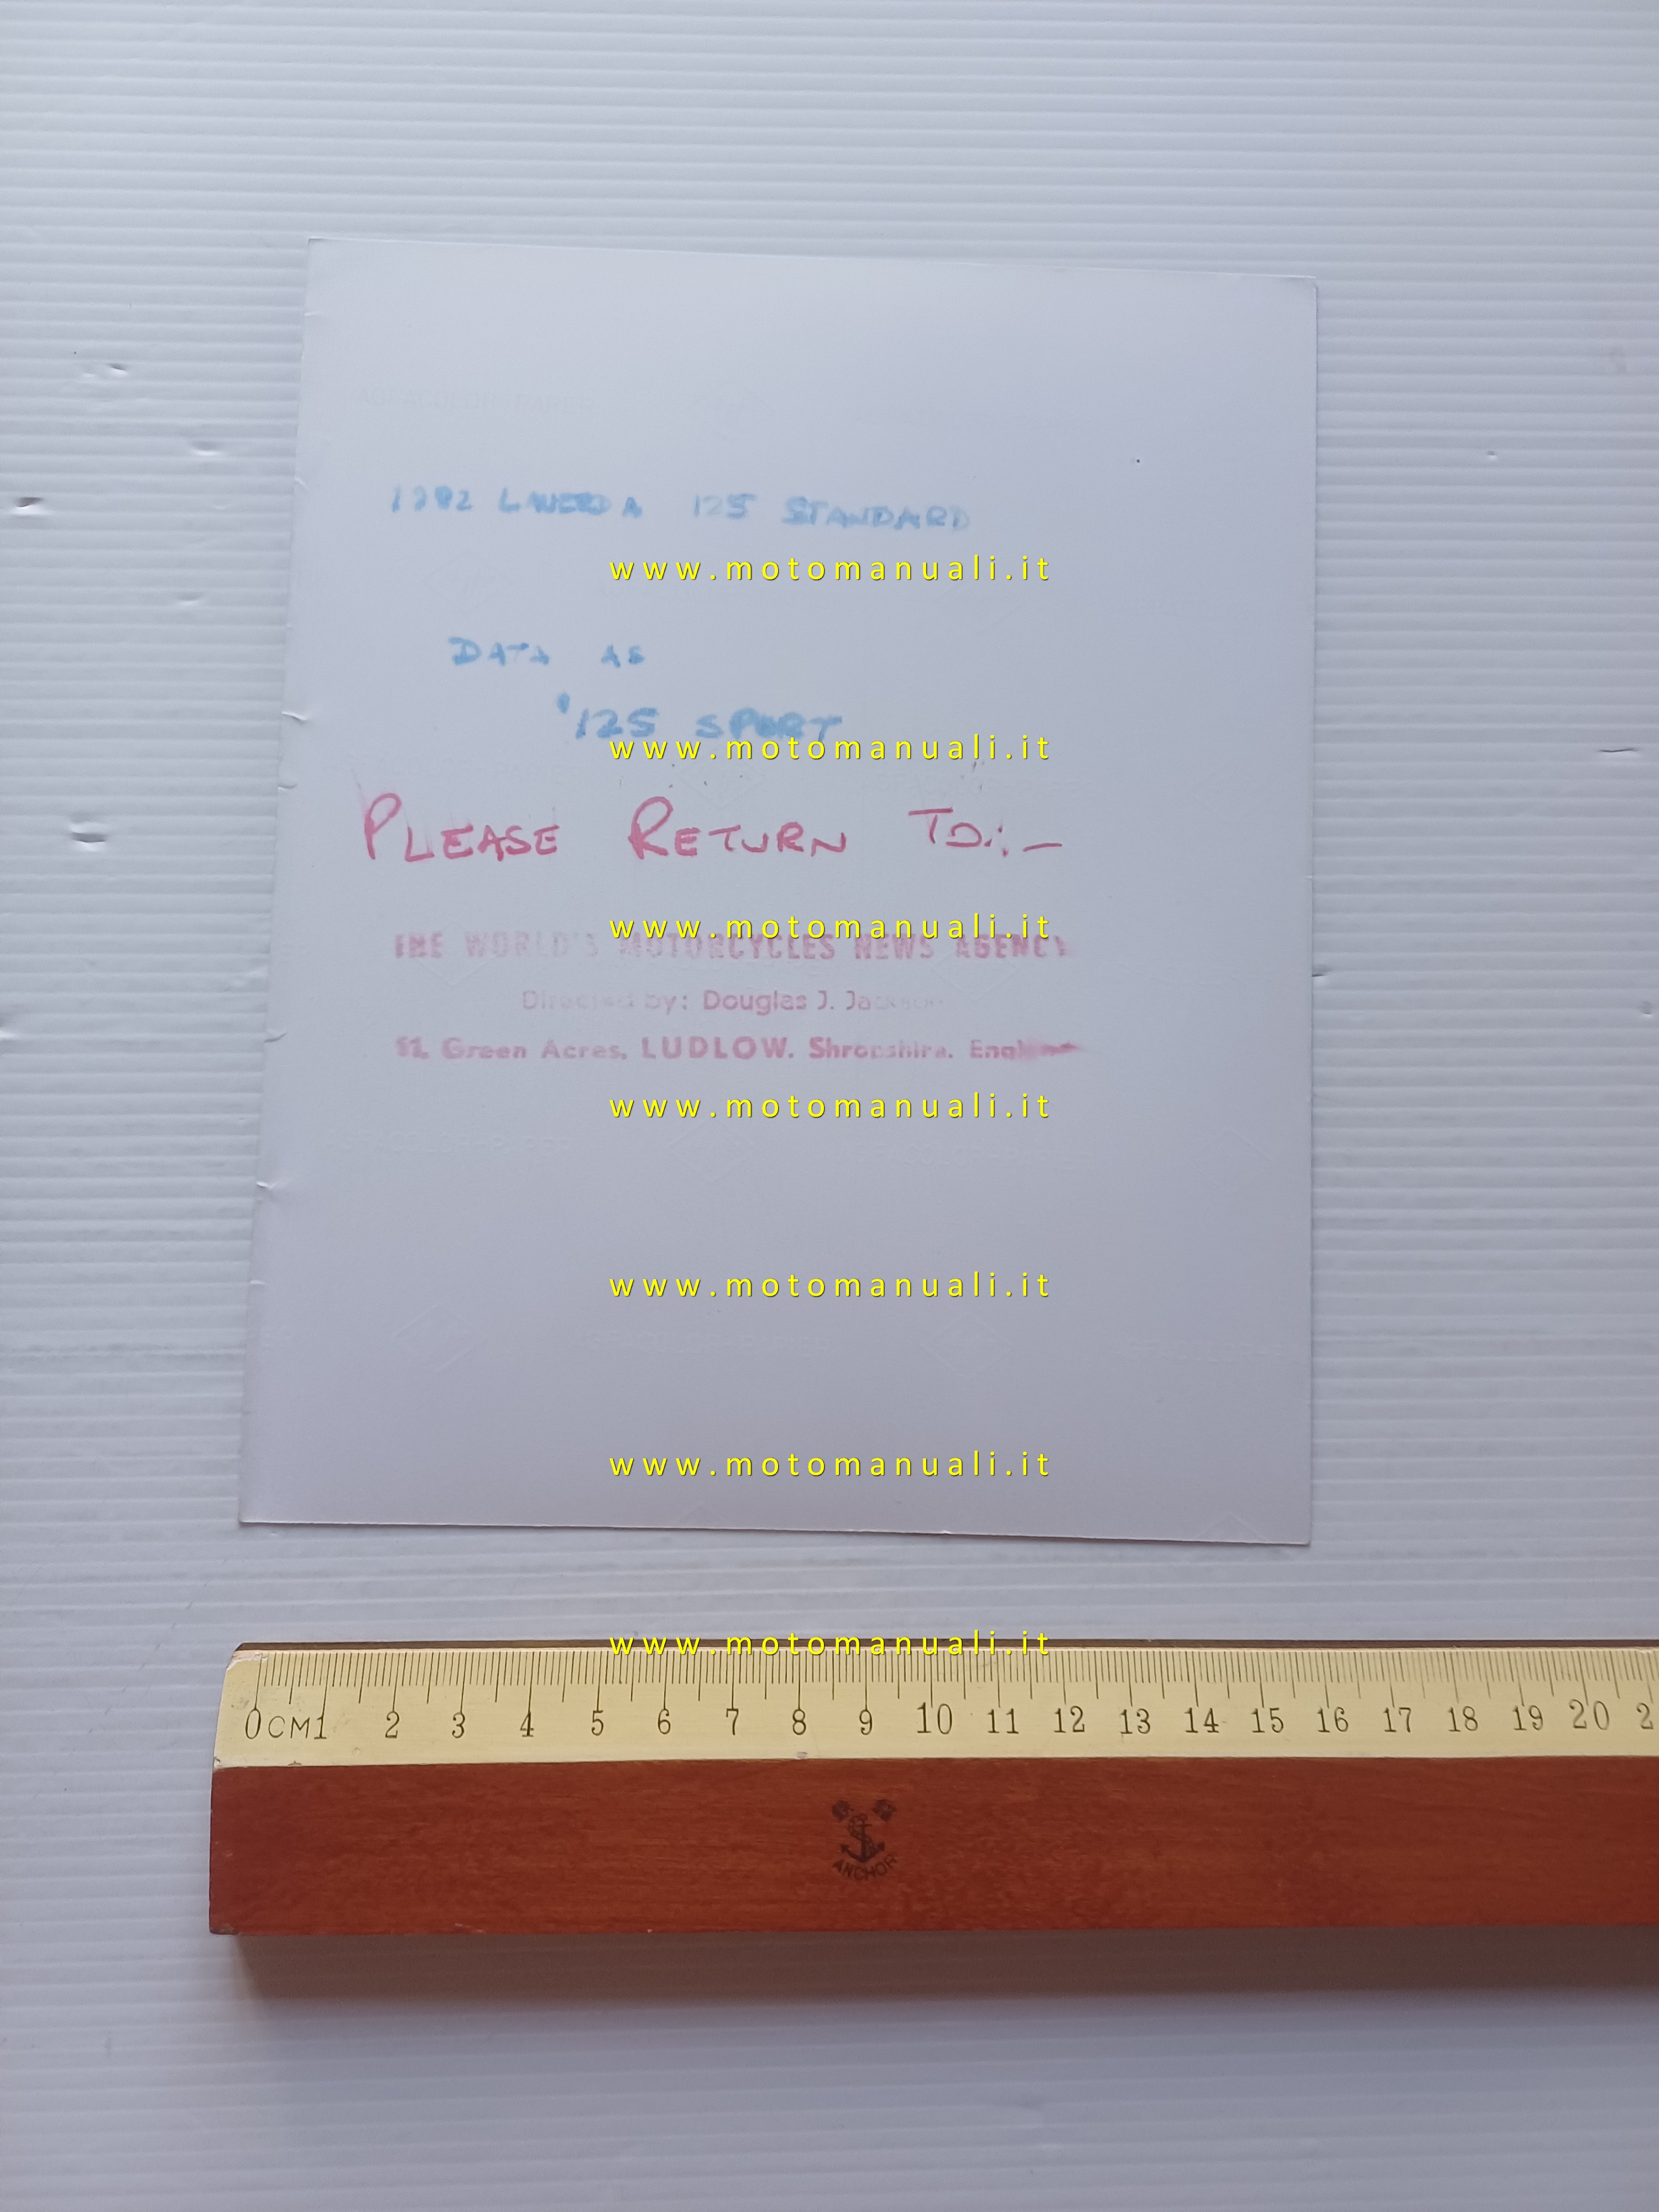 1982 LAVERDA 125 STANDARD
www.motomanuali.it
DATA AS
'125 SPORT
www.motomanuali.it
PLEASE RETURN TO:-
www.motomanuali.it
THE WORLD'S MOTORCYCLES NEWS AGENCY
Directed by: Douglas J.
Green Acres, LUDLOW. Shropshire. England
www.motomanuali.it
www.motomanuali.it
www.motomanuali.it
www.motomanuali.it
0CM1 2 3 4 5 6 7 8 9 10 11 12 13 14 15 16 17 18 19 20 2
ANCHOR